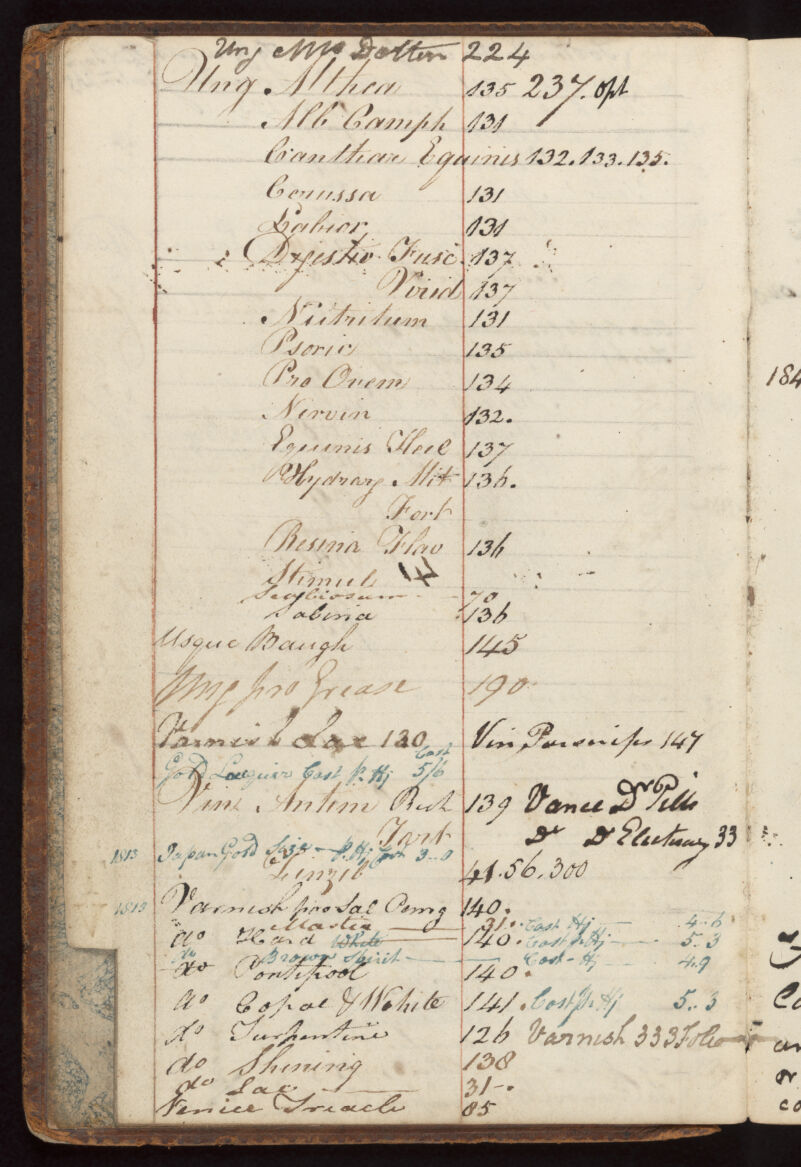 Ung Mrs Dalton 224
Ung Althea 135 237. opt
Alb Camph 131
Canthar Equinis 132. 133. 135.
Cerussa 131
Labior 131
Digestiv Fusc 137
Virid 137
Nutritum 131
Psoric 135
Pro Ovem 134
Nervin 132.
Equinis Heel 137
Hydrarg Mit 136.
Fort
Resina Flav 136
Stimul 41
70
Sabina 136
Usque Baugh 145
Ung pro Grease 190
Varnish Lac 120 Vin Parsnips 147
Gold Lacquer Cost p. Hj Cost 5/6
Vini Antim Rect 139 Vance Dr Pills
Tart Do Do Electuary 33
1813 Japan Gold Size p. Hj Cost 3..0
Zinzib 41. 56. 300
1813 Varnish pro Sal Comg 140.
Mastic 31. Cost Hj 4..6
do Hard White 140. Cost p. Hj 5..3
do Brown Spirit Cost Hj 4..9
do Pontipool 140.
do Copal & White 141. Cost p. Hj 5..3
do Turpentine 126 Varnish 333 Folio
do Shining 138
do Lac 31.
Venice Treacle 85
184